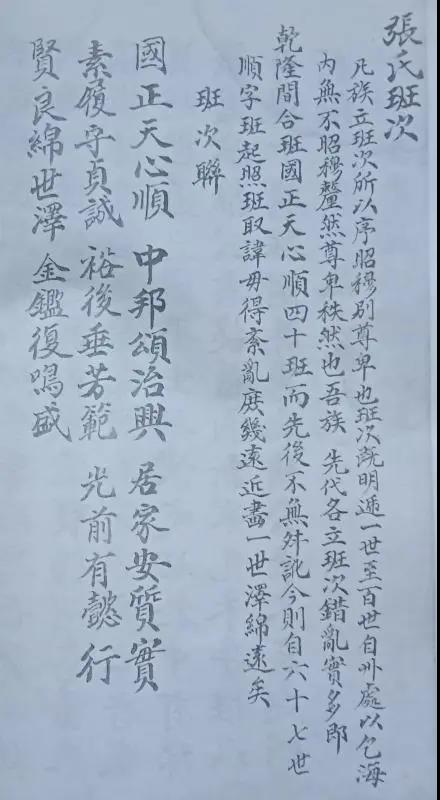 張氏班次
凡族立班次所以序昭穆別尊卑也班次既明遞一世至百世自州處以乞海
內無不昭穆釐然尊卑秩然也吾族 先代各立班次錯亂實多即
乾隆間合班國正天心順四十班而先後不無舛訛今則自六十七世
順字班起照班取諱毋得紊亂庶幾遠近畫一世澤綿遠矣
班次聯
國正天心順 中邦頌治興 居家安質實
素履守貞誠 裕後垂芳範 光前有懿行
賢良綿世澤 金鑑復鳴盛